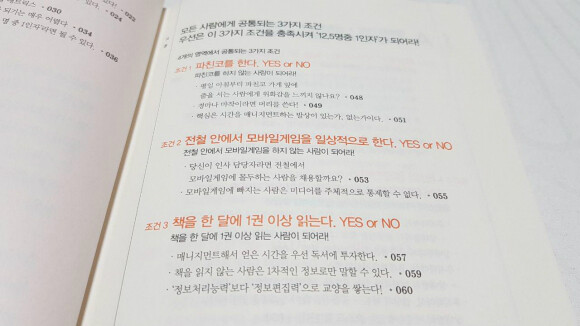 매트리스 · 030
되기는 매우 어렵다. · 034
명 중 1인자'라면 될 수 있다.
· 036
모든 사람에게 공통되는 3가지 조건
우선은 이 3가지 조건을 충족시켜 '12.5명중 1인자'가 되어라!
4개의 영역에서 공통되는 3가지 조건
조건 1 파친코를 한다. YES or NO
파친코를 하지 않는 사람이 되어라!
· 평일 아침부터 파친코 가게 앞에
줄을 서는 사람에게 위화감을 느끼지 않나요? · 048
· 경마나 마작이라면 머리를 쓴다! · 049
· 핵심은 시간을 매니지먼트하는 발상이 있는가, 없는가이다. · 051
조건 2 전철 안에서 모바일게임을 일상적으로 한다. YES or NO
전철 안에서 모바일게임을 하지 않는 사람이 되어라!
· 당신이 인사 담당자라면 전철에서
모바일게임에 몰두하는 사람을 채용할까요? · 053
· 모바일게임에 빠지는 사람은 미디어를 주체적으로 통제할 수 없다. · 055
조건 3 책을 한 달에 1권 이상 읽는다. YES or NO
책을 한 달에 1권 이상 읽는 사람이 되어라!
· 매니지먼트해서 얻은 시간을 우선 독서에 투자한다. · 057
· 책을 읽지 않는 사람은 1차적인 정보로만 말할 수 있다. · 059
· '정보처리능력'보다 '정보편집력'으로 교양을 쌓는다! · 060